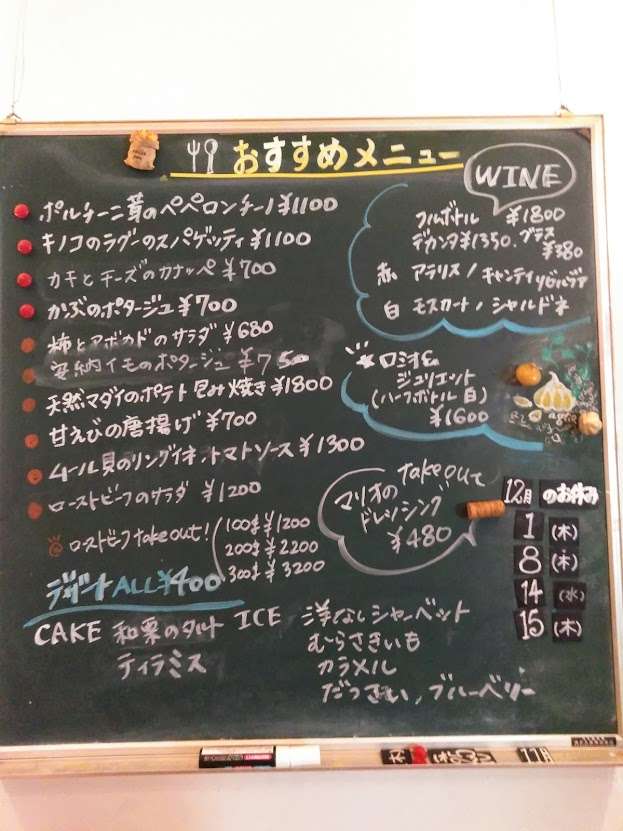 おすすめメニュー
ポルチーニ茸のペペロンチーノ ¥1100
キノコのラグーのスパゲッティ ¥1100
カキとチーズのカナッペ ¥700
かぶのポタージュ ¥700
柿とアボカドのサラダ ¥680
安納イモのポタージュ ¥750
天然マダイのポテト包み焼き ¥1800
甘えびの唐揚げ ¥700
ムール貝のリングイネ、トマトソース ¥1300
ローストビーフのサラダ ¥1200
ローストビーフtake out!
100g ¥1200
200g ¥2200
300g ¥3200
デザート ALL ¥400
CAKE 和栗のタルト
ティラミス
ICE 洋なしシャーベット
むらさきいも
カラメル
だっさい、ブルーベリー
WINE
フルボトル ¥1800
デカンタ ¥1350. グラス
¥380
赤 アラリス / キャンティ
白 モスカート / シャルドネ
ロミオ&
ジュリエット
(ハーフボトル 白)
¥1600
take out
マリオの
ドレッシング
¥480
12月 のお休み
1 (木)
8 (木)
14 (水)
15 (木)
11月